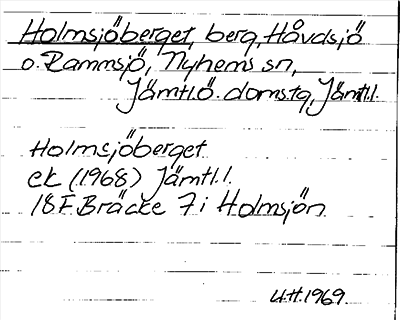 Holmsjöberget, berg, Håvdsjö
o. Rammsjö, Nyhems sn,
Jämtl.Ö. domstg, Jämtl.
Holmsjöberget
ek (1968) Jämtl.l.
18 F Bräcke 7 i Holmsjön
U.H. 1969.